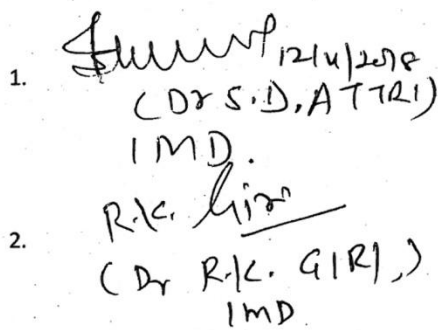 1. 12/4/2018
(Dr S.D. ATTRI)
IMD.
2. R.K. Giri
(Dr R.K. GIRI,)
IMD